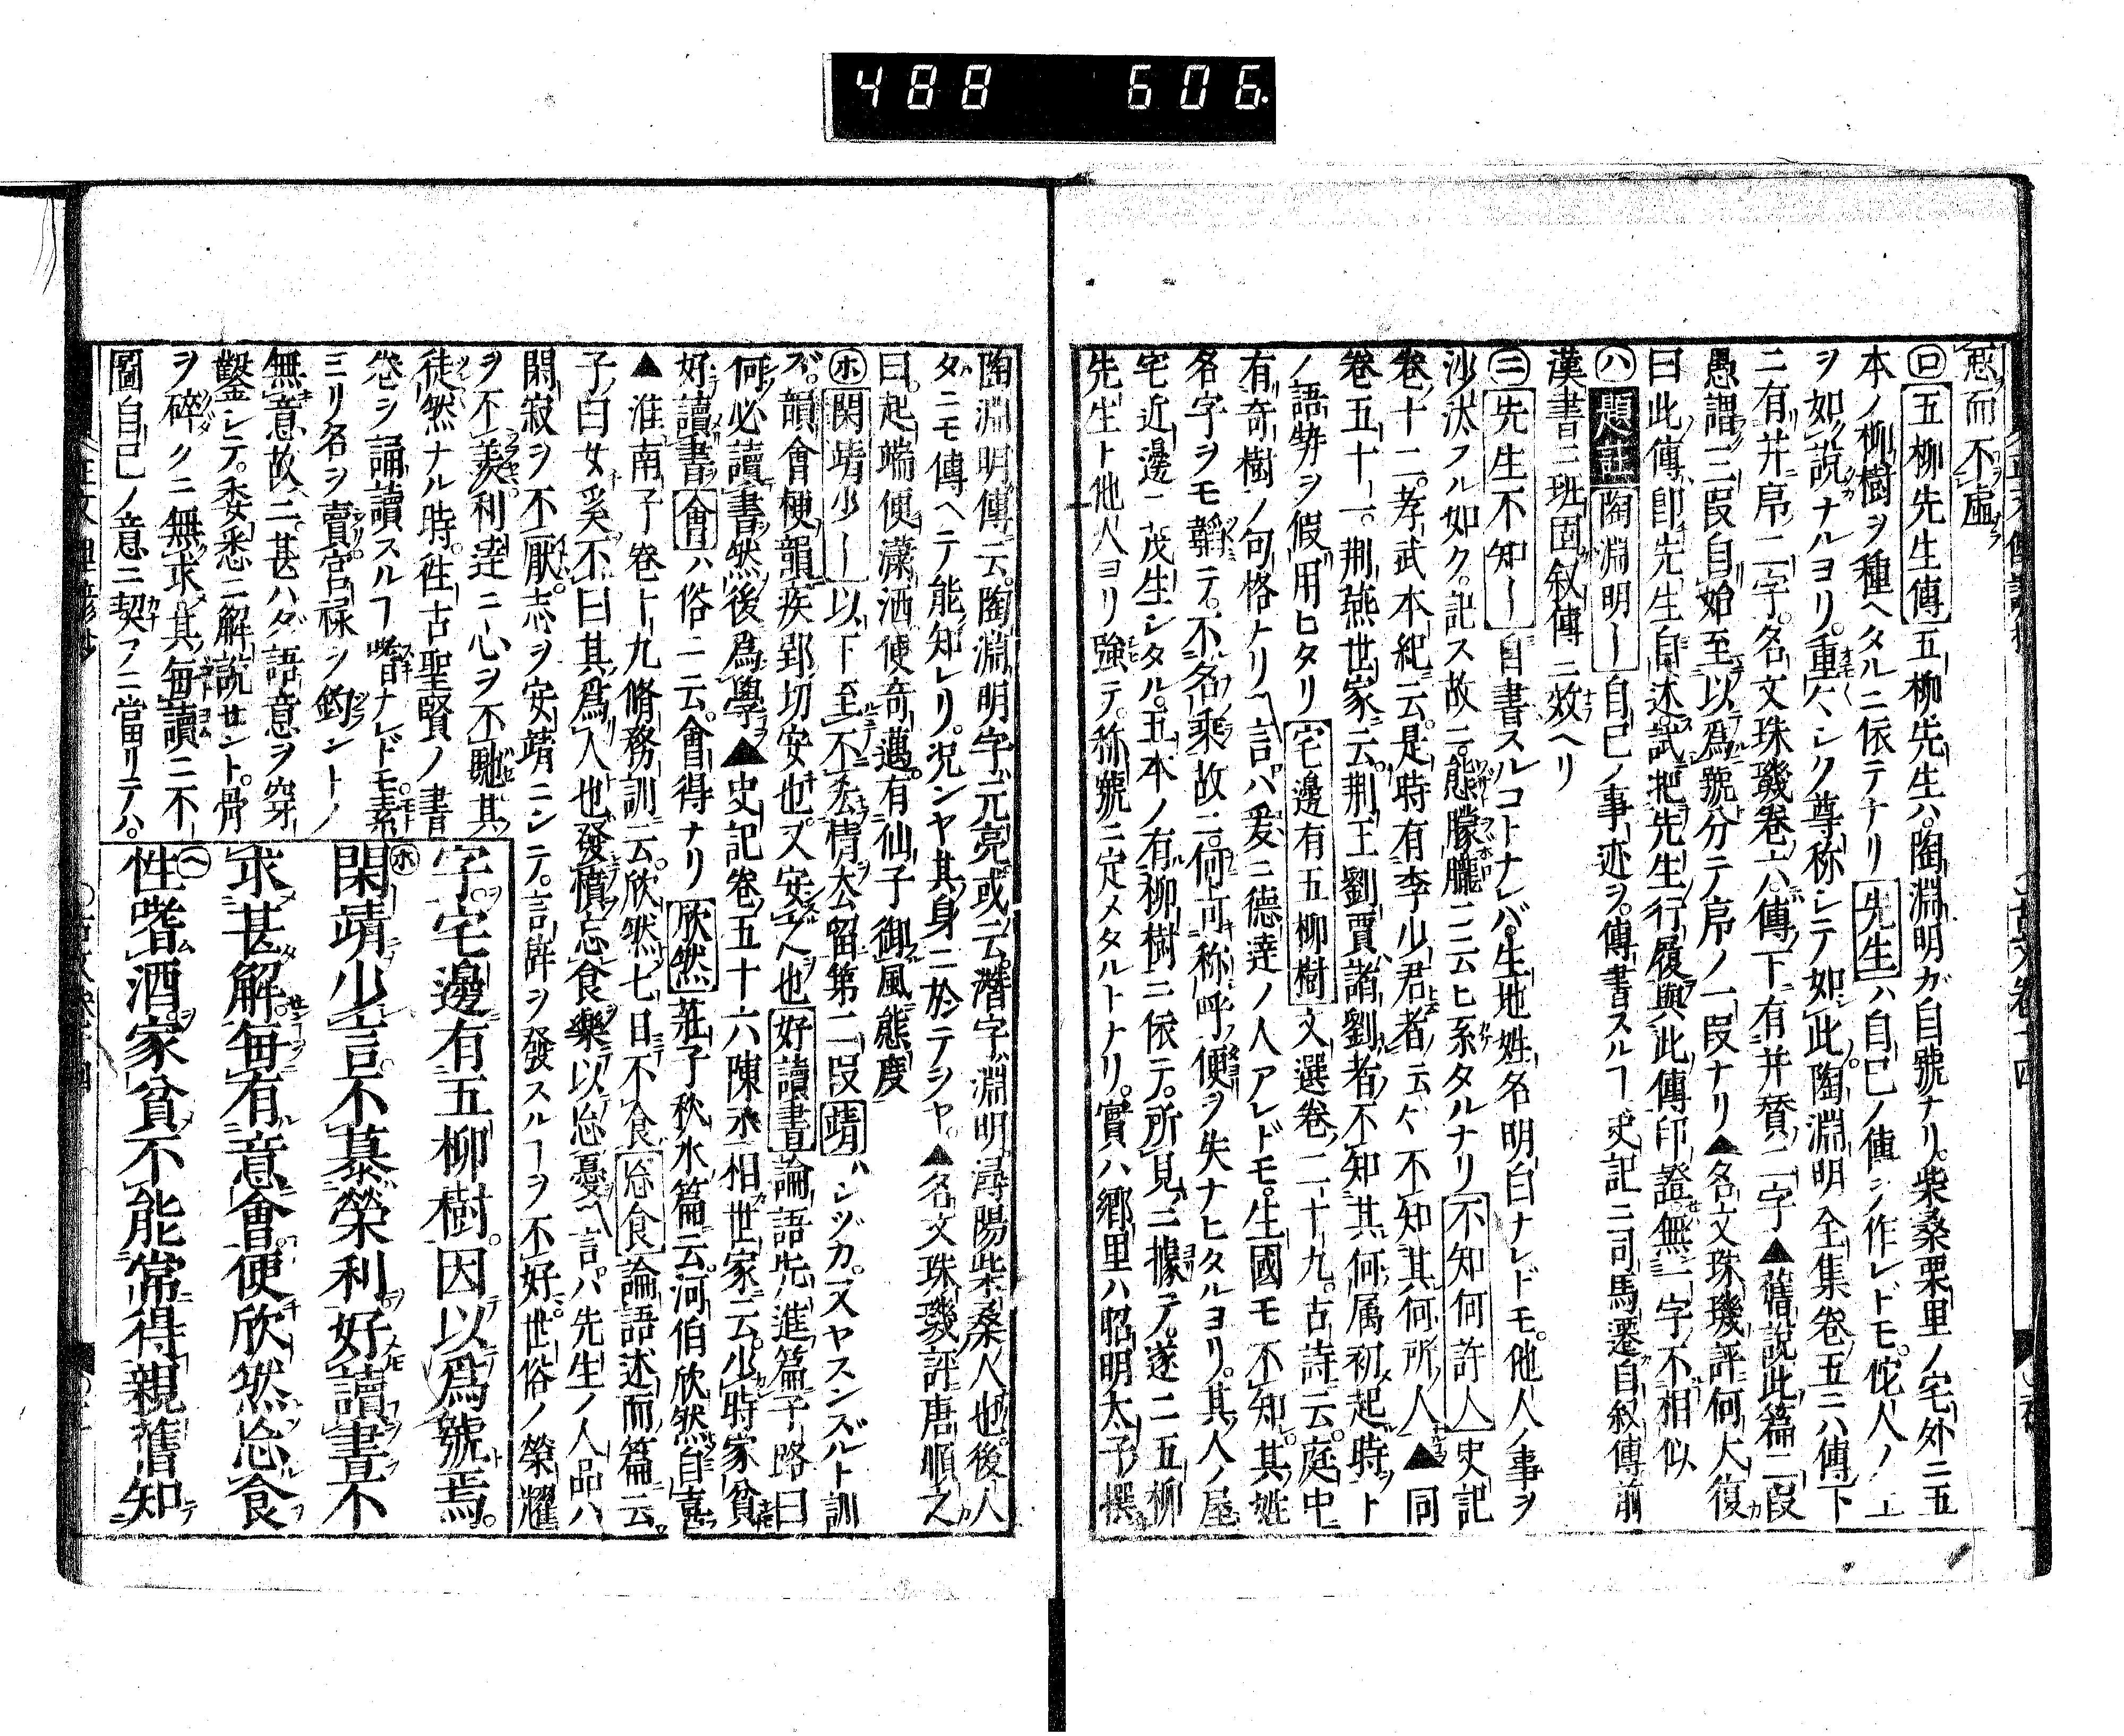 488 606.
而不虛
ロ五柳先生傳五柳先生ハ。陶淵明ガ自號ナリ。柴桑栗里ノ宅外ニ五
本ノ柳樹ヲ種ヘタルニ依テナリ先生ハ自己ノ傳ヲ作レドモ。佗人ノ上
ヲ如說ナルヨリ。重々シク尊称シテ如此陶淵明全集卷五ニハ傳下
ニ有并序二字。名文珠璣卷六ハ傳下有并賛二字▲舊說此篇二段
愚謂三段自始至以爲號分テ序ノ一段ナリ▲名文珠璣評何大復
曰此傳即先生自述試把先生行履與此傳印證無一字不相似
ハ題註陶淵明ー自己ノ事迹ヲ。傳書スルヿ史記ニ司馬遷自叙傳前
漢書ニ班固叙傳ニ效ヘリ
ニ先生不知ー自書スルコトナレバ。生地姓名明白ナレドモ。他人ノ事ヲ
沙汰スル如ク。記ス故ニ。態朦朧ニ云ヒ系タルナリ不知何許人史記
卷十二。孝武本紀云。是時有李少君者云々不知其何所人▲同
卷五十一。荆燕世家云。荆王劉賈諸劉者不知其何属初起時ト
ノ語勢ヲ假用ヒタリ宅邊有五柳樹文選卷二十九。古詩云。庭中
有奇樹ノ句格ナリ言ハ爰ニ德達ノ人アレドモ。生國モ不知其姓
名字ヲモ韜テ。不名乘故ニ。何ト可称呼便ヲ失ナヒタルヨリ。其人ノ屋
宅近邊ニ茂生シタル。五本ノ有柳樹ニ依テ。所見ニ據テ。遂ニ五柳
先生ト他人ヨリ強テ。称號ニ定メタルトナリ。實ハ鄕里ハ昭明太子撰
陶淵明傳云。陶淵明字元亮或云。潛字淵明潯陽柴桑人也。後人
タニモ傳ヘテ能知レリ。況ンヤ其身ニ於テヲヤ。▲名文珠璣評唐順之
曰。起端便瀟洒便奇邁有仙子御風態度
ホ閑靖少ー以下至不吝情去留第二段靖ハシヅカ。又ヤスンズルト訓
ズ。韻會梗韻疾郢切安也。又安之也好讀書論語先進篇子路曰
何必讀書然後爲學▲史記卷五十六陳丞相世家云。少時家貧
好讀書會ハ俗ニ云。會得ナリ欣然莊子秋水篇云。河伯欣然自喜
▲淮南子卷十九脩務訓云。欣然七日不食忘食論語述而篇云。
子曰女奚不曰其爲人也發憤忘食樂以忘憂言ハ先生ノ人品ハ
閑寂ヲ不厭志ヲ安靖ニシテ。言辭ヲ發スルヿヲ不好。世俗ノ榮耀
ヲ不羨利達ニ心ヲ不馳其
徒然ナル時。徃古聖賢ノ書
卷ヲ誦讀スルヿ嗜ナレドモ素
ヨリ名ヲ賣官禄ヲ釣ントノ
無意故ニ。甚ハダ語意ヲ穿
鑿シテ。委悉ニ解說セント。骨
ヲ碎クニ無求。其毎讀ニ不
圖自己ノ意ニ契フニ當リテハ。
字。宅邊有五柳樹。因以爲號焉。
ホ閑靖少言。不慕榮利。好讀書不
求甚解。毎有意會。便欣然忘食
ヘ性嗜酒。家貧不能常得。親舊知